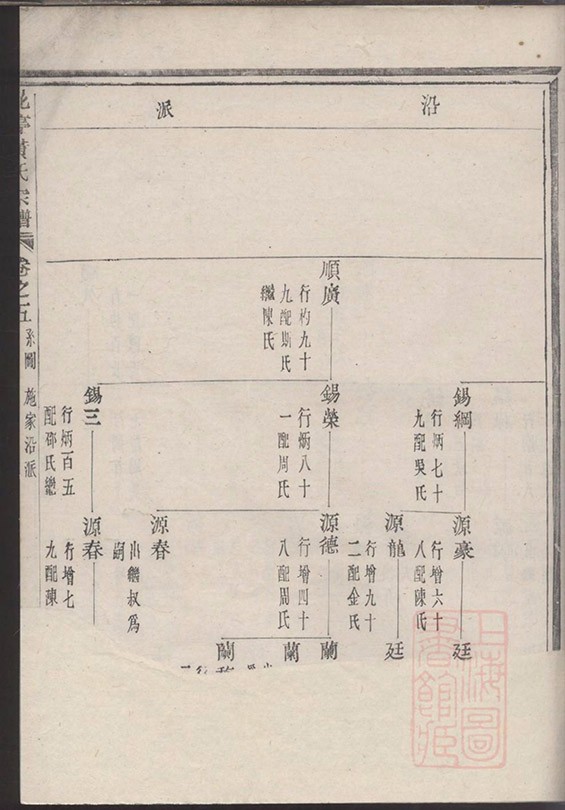 沿
派
順廣
行杓九十
九配斯氏
繼陳氏
錫綱
行炳七十
九配吳氏
錫榮
行炳八十
一配周氏
錫三
行炳百五
配邵氏繼
源豪
行增六十
八配陳氏
源龍
行增九十
二配金氏
源德
行增四十
八配周氏
源春
出繼叔爲
嗣
源春
行增七
九配陳
廷
廷
蘭
蘭
蘭
亭黃氏宗譜
卷之五
系圖
施家沿派
上海圖
書館藏